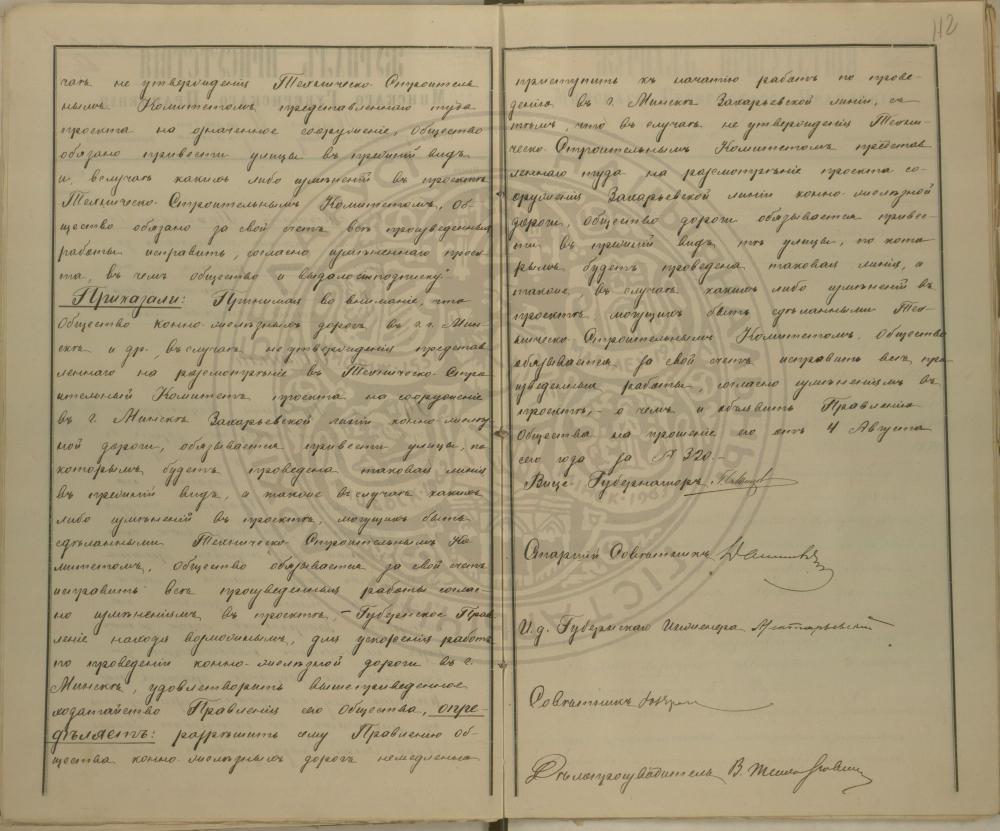 112
чаѣ не утвержденія Техническо-Строитель
нымъ Комитетомъ представленнаго туда
проекта на означенное сооруженіе, общество
обязано привести улицы въ прежній видъ
и, въ случаѣ какихъ либо измѣненій въ проектѣ
Техническо-Строительнымъ Комитетомъ, об-
щество обязано за свой счетъ всѣ произведенныя
работы исправить, согласно измѣненнаго проек
та, въ чемъ общество и выдало подписку."
Приказали: Принимая во вниманіе, что
Общество конно-желѣзныхъ дорогъ въ г.г. Мин-
скѣ и др., въ случаѣ не утвержденія представ
леннаго на разсмотрѣніе въ Техническо-Стро
ительный Комитетъ проекта на сооруженіе
въ г. Минскѣ Захарьевской линіи конно-желѣз
ной дороги, обязывается привести улицы, по
которымъ будетъ проведена таковая линія
въ прежній видъ, а также въ случаѣ какихъ
либо измѣненій въ проектѣ, могущихъ быть
сдѣланными Техническо-Строительнымъ Ко
митетомъ, Общество обязывается за свой счетъ
исправить всѣ произведенныя работы соглас
но измѣненіямъ въ проектѣ, – Губернское Прав
леніе находя возможнымъ, для ускоренія работъ
по проведенію конно-желѣзной дороги въ г.
Минскѣ, удовлетворить вышеприведенное
ходатайство Правленія сего общества, опре-
дѣляетъ: разрѣшить сему Правленію об-
щества конно-желѣзныхъ дорогъ немедленно
приступить къ начатію работъ по прове-
денію въ г. Минскѣ Захарьевской линіи, съ
тѣмъ, что въ случаѣ не утвержденія Техни-
ческо-Строительнымъ Комитетомъ представ
леннаго туда на разсмотрѣніе проекта со-
оруженія Захарьевской линіи конно-желѣзной
дороги, общество дороги обязывается приве-
сти въ прежній видъ тѣ улицы, по кото
рымъ будетъ проведена таковая линія, а
также, въ случаѣ какихъ либо измѣненій въ
проектѣ, могущихъ быть сдѣланными Тех-
ническо-Строительнымъ Комитетомъ, Общество
обязывается за свой счетъ исправить всѣ про
изведенныя работы, согласно измѣненіямъ въ
проектѣ, – о чемъ и объявить Правленію
Общества на прошеніе его отъ 4 Августа
сего года за № 320.–
Вице-Губернаторъ
Старшій Совѣтникъ
И.д. Губернскаго Инженера
Совѣтникъ
Дѣлопроизводитель В.